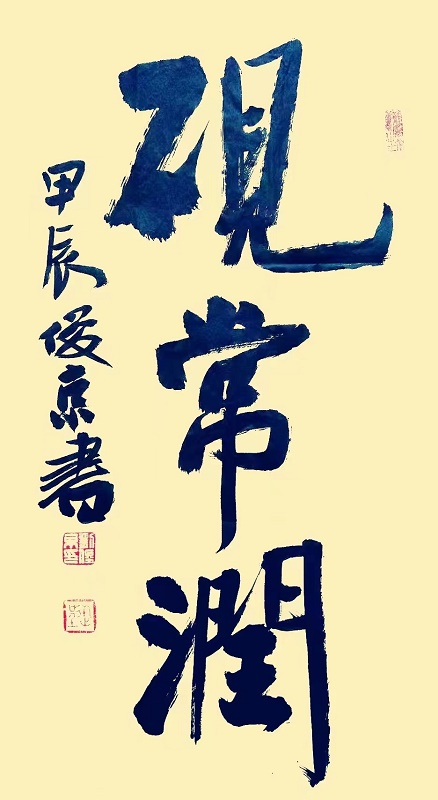 砚常润
甲辰俊京書